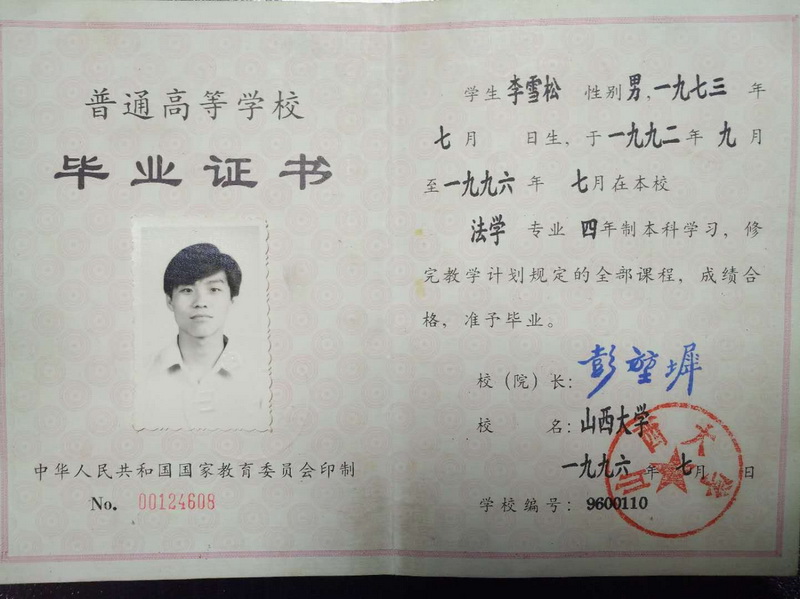 普通高等学校
毕业证书
中华人民共和国国家教育委员会印制
No. 00124608
学生李雪松 性别男,一九七三 年
七月 日生,于一九九二年九月
至一九九六年 七月在本校
法学 专业 四年制本科学习,修
完教学计划规定的全部课程,成绩合
格,准予毕业。
校(院)长:彭堃墀
校 名:山西大学
一九九六年七月 日
学校编号:9600110
山西大学